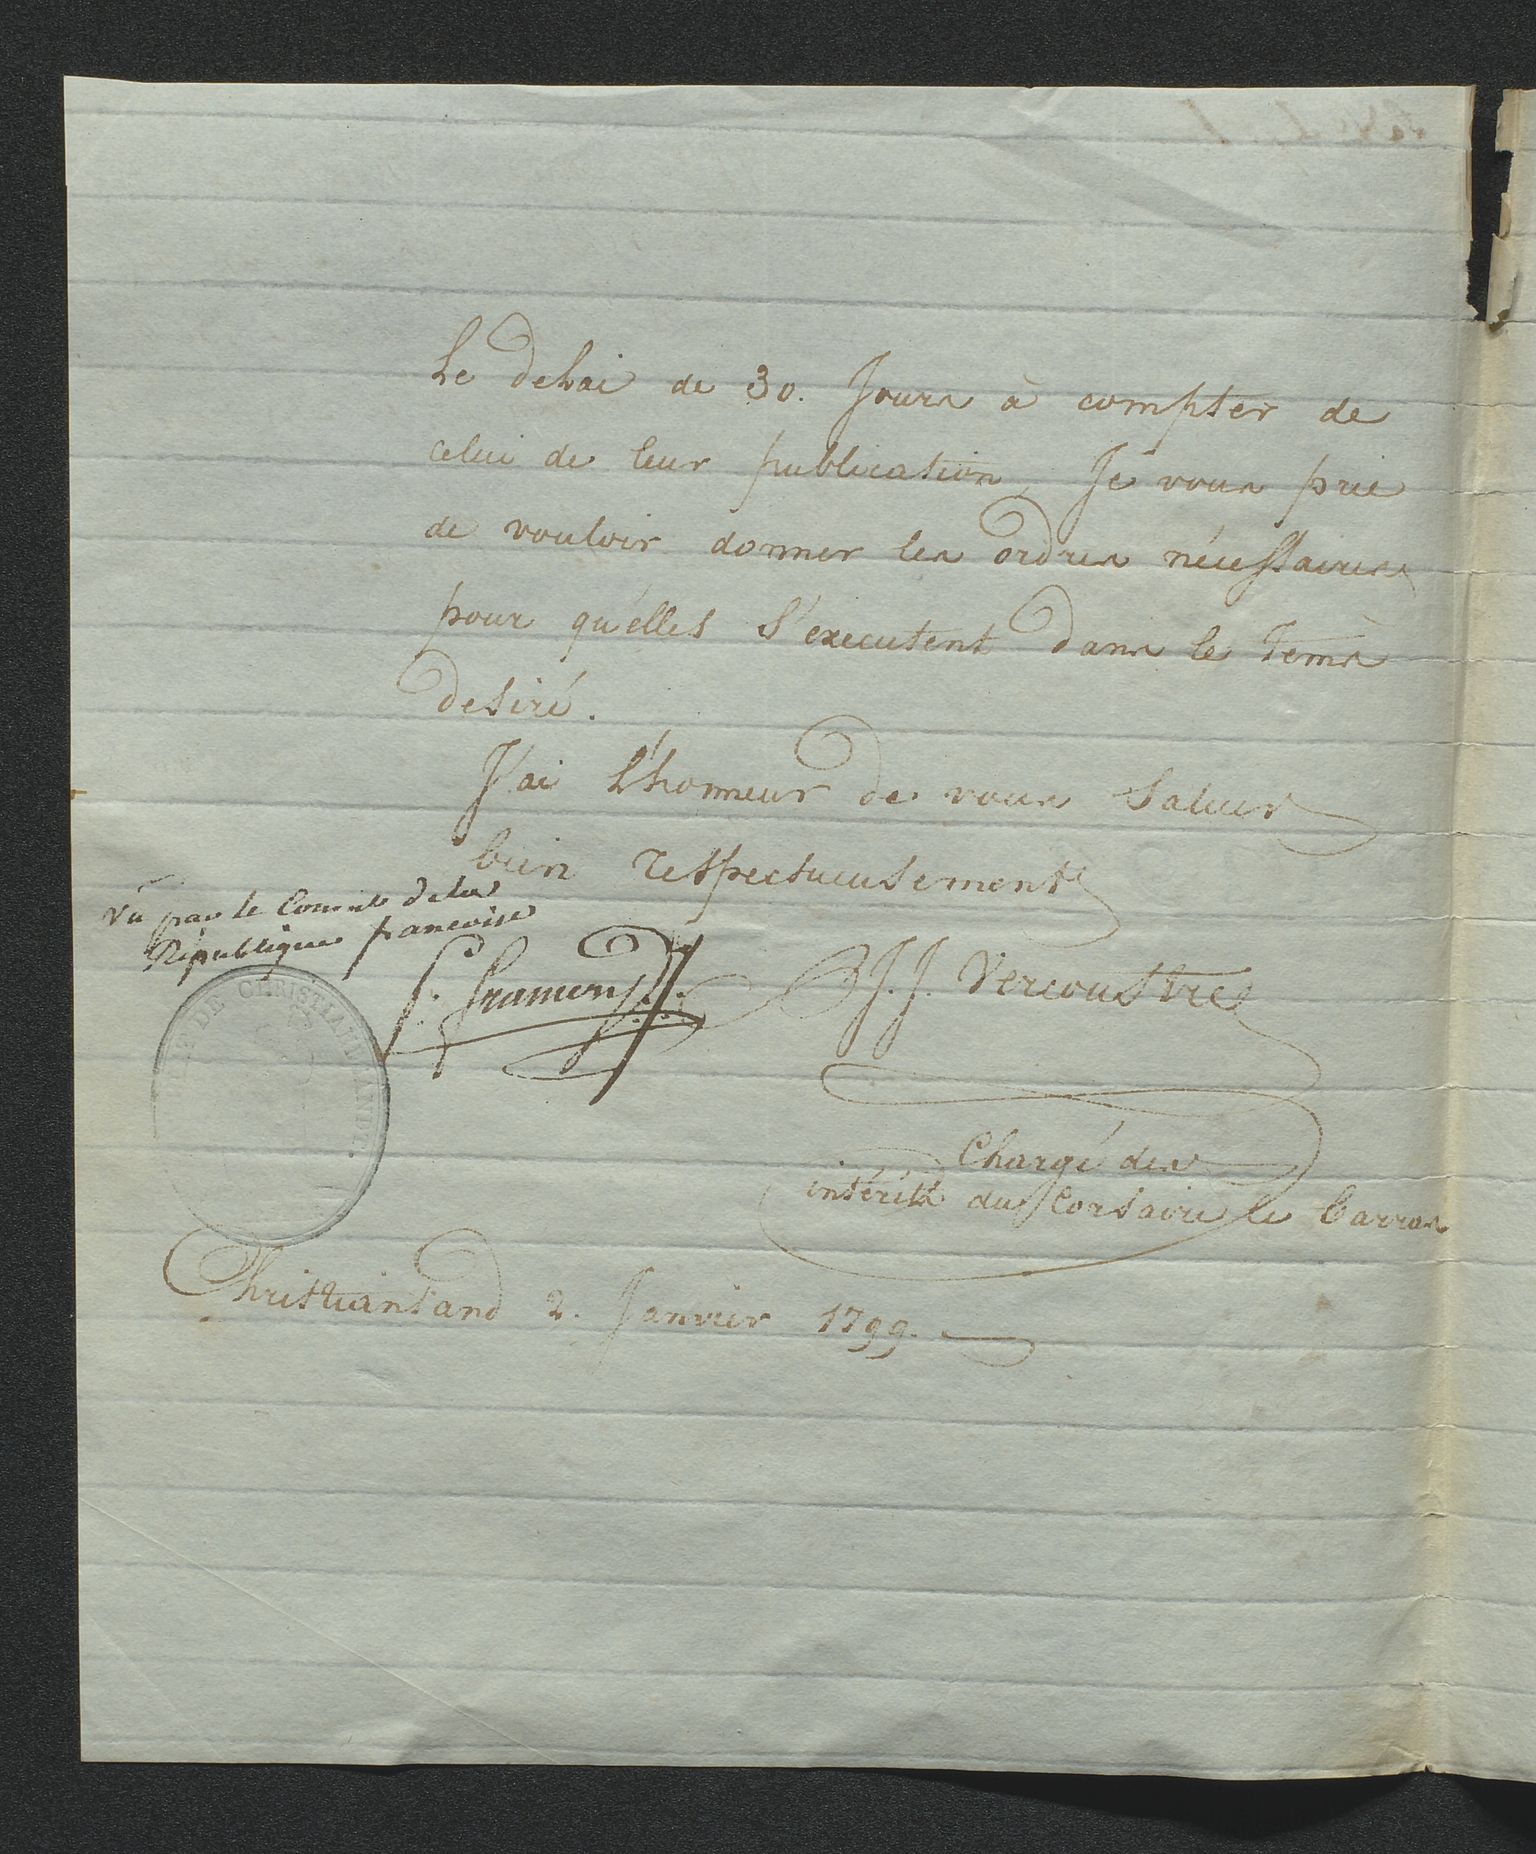 le delai de 30. Jours à compter de
celui de leur publication, Je vous prie
de vouloir donner les ordres nécessaires
pour qu'elles s'executent dans le tems
desiré.
J'ai l'honneur de vous saluer
bien respectueusement
Vû par le Consul de la
République francoise
J. J. Vercoustre
Chargé des
intérêts du Corsaire le Barras
DE CHRISTIANSAND.
Christiansand 2. Janvier 1799.